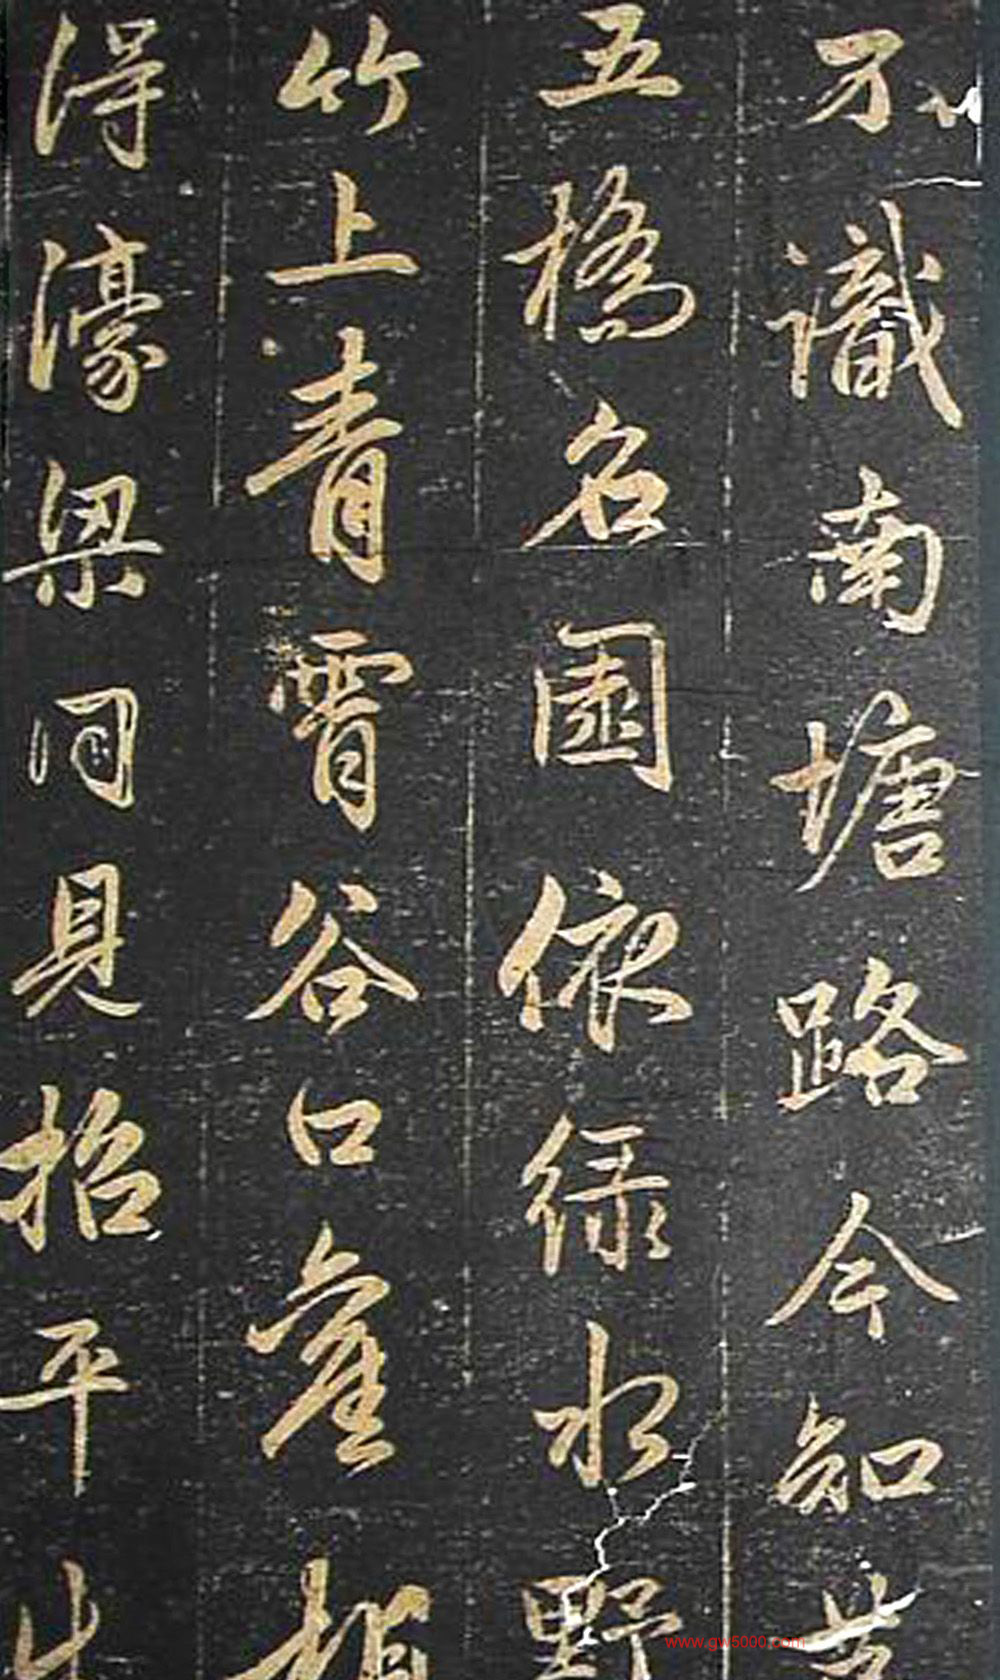 不識南塘路今知第
五橋名園依綠水野
竹上青霄谷口舊相
得濠梁同見招平生
www.gw5000.com